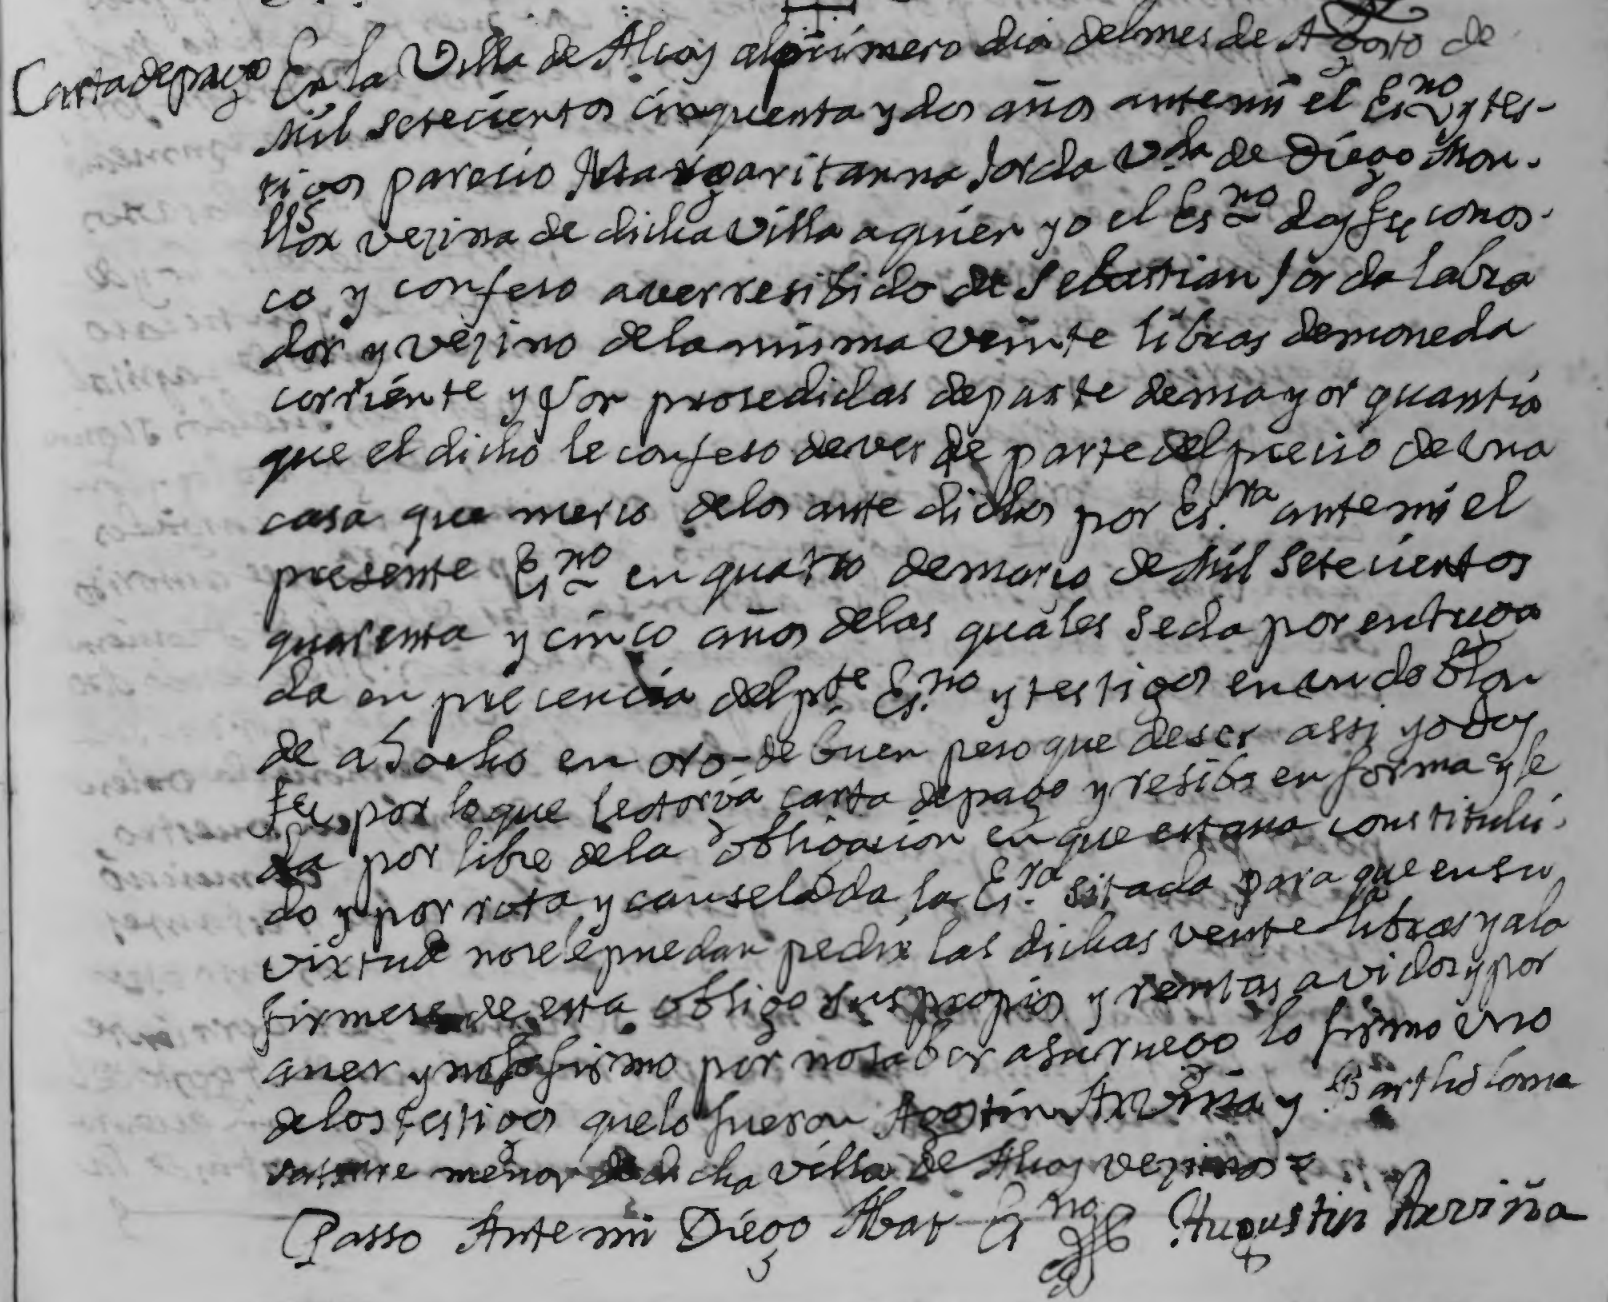 Carta de pago En la Villa de Alcoy al primero dia del mes de Agosto de
Mil setecientos cinquenta y dos años ante mi el Es.no y tes-
tigos parecio Margaritanna Jorda V.da de Diego Mon-
llor vezina de dicha villa a quien yo el Es.no doy fee conos-
co y confeso aver resibido de Sebastian Jorda labra
dor y vezino de la misma veinte libras de moneda
corriente y son prosedidas de parte de mayor quantia
que el dicho le confeso dever de parte del precio de una
casa que merco de los ante dichos por Es.ra ante mi el
presente Es.no en quatro de marso de Mil setecientos
quarenta y cinco años de las quales se da por entrega
da en precencia del p.te Es.no y testigos en un doblon
de a ocho en oro de buen peso que de ser assi yo doy
fee por lo que le otorva carta de pago y resibo en forma y le
da por libre de la obligasion en que estava constitui-
do y por rota y canselada la Es.ra sitada para que en su
virtud no se le puedan pedir las dichas veinte libras y a la
firmesa de esta obligo sus propios y rentas avidos y por
aver y no lo firmo por no saber a su ruego lo firmo uno
de los testigos que lo fueron Agostin Arviña y Bartholome
menor de dicha villa de Alcoy vezinos =
Passo Ante mi Diego Abat Es.no Augustin Arviña